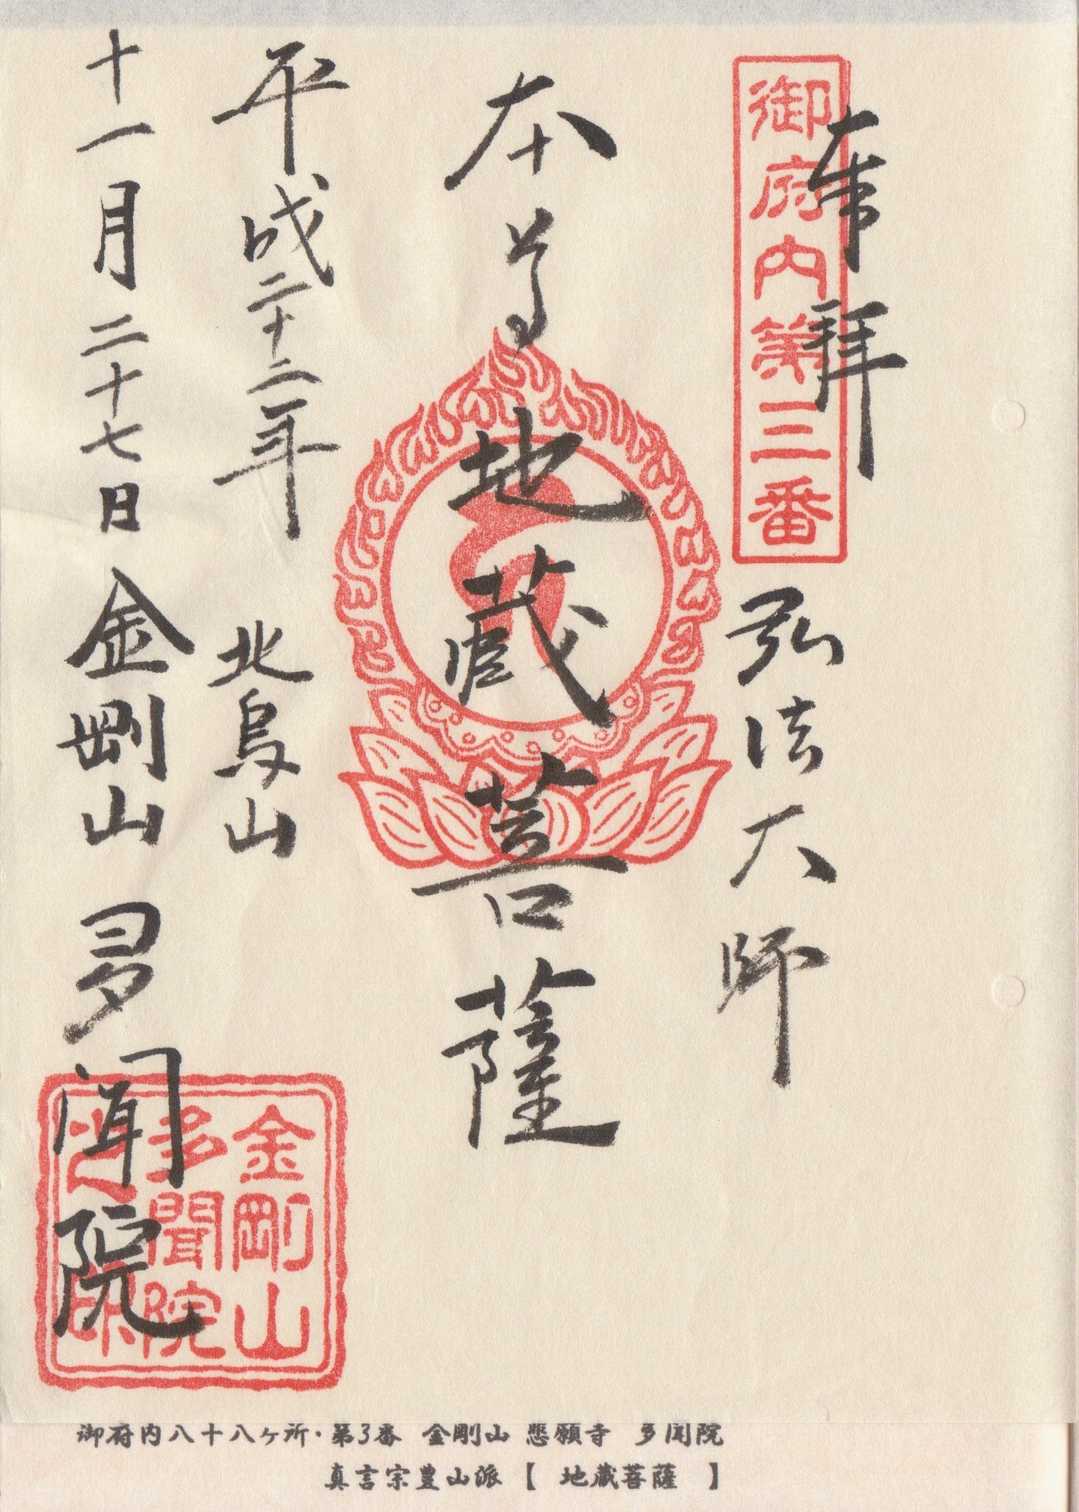 奉拝
御府内第三番
弘法大師
本尊
地蔵菩薩
平成二十二年
北烏山
十一月二十七日
金剛山
多聞院
金剛山
多聞院
御府内八十八ヶ所・第3番 金剛山 悲願寺 多聞院
真言宗豊山派【 地蔵菩薩 】